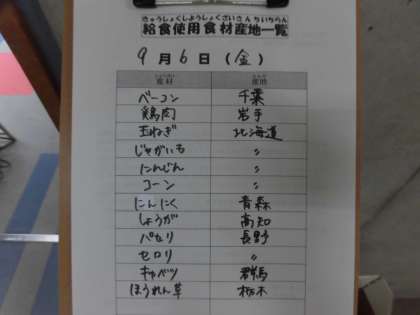 きゅうしょくしようしょくざいさんちいちらん
給食使用食材産地一覧
9月6日(金)
食材 産地
ベーコン 千葉
鶏肉 岩手
玉ねぎ 北海道
じゃがいも 〃
にんじん 〃
コーン 〃
にんにく 青森
しょうが 高知
パセリ 長野
セロリ 〃
キャベツ 群馬
ほうれん草 栃木